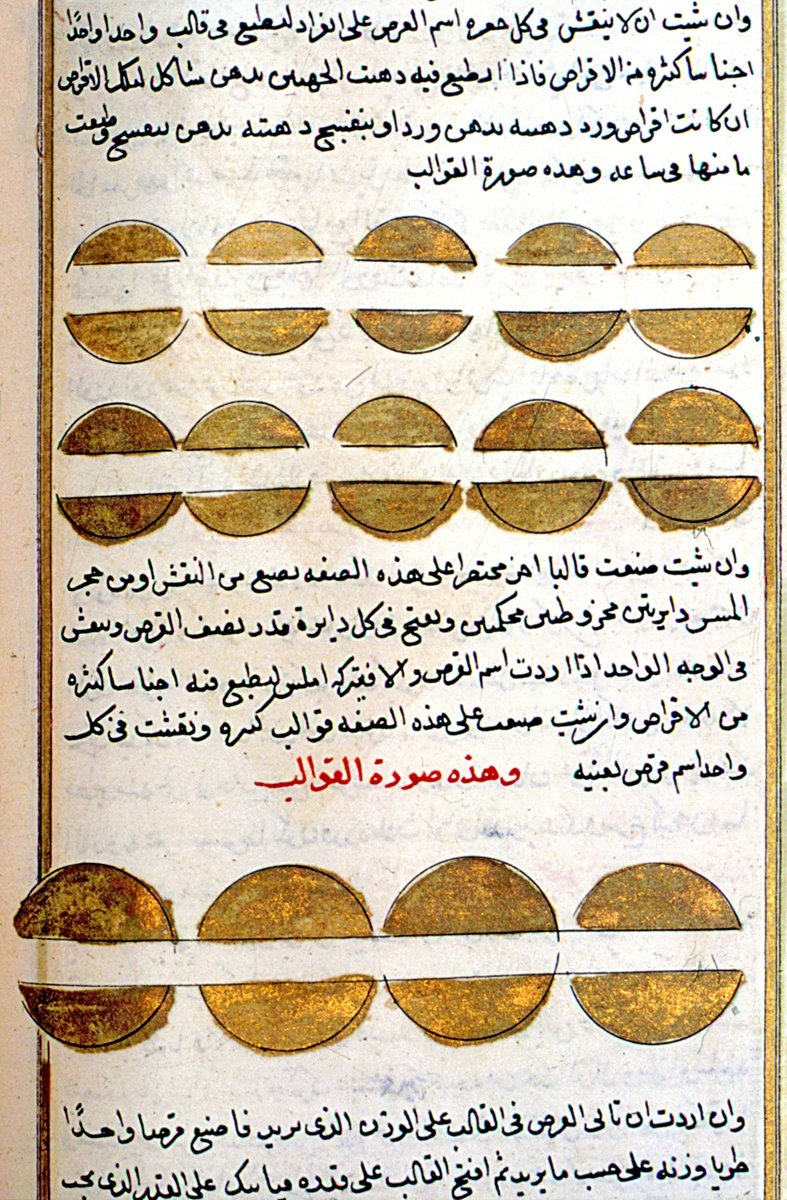 وان شيت ان لا ينقش فى كل حفره اسم القرص على انفراد ليطبع فى قالب واحدا واحدًا
اجناسا كثيره من الاقراص فاذا انطبع فيه دهنت الجهتين بدهن مشاكل لتلك الاقراص
ان كانت اقراص ورد دهنته بدهن ورد او بنفسج دهنته بدهن بنفسج وطبعت
ما منها فى ساعه وهذه صورة القوالب
وان شيت صنعت قالبا اخر مختصرا على هذه الصفه يصنع من النقش او من حجر
المسن دايرتين مخروطتين محكمتين وتفتح فى كل دايرة قدر نصف القرص وينقش
فى الوجه الواحد اذا اردت اسم القرص والا فيتركه املس ليطبع فيه اجناسا كثيره
من الاقراص وان شيت صنعت على هذه الصفه قوالب كثيره ونقشت فى كل
واحد اسم قرص بعينه وهذه صورة القوالب
وان اردت ان تاتى القرص فى القالب على الوزن الذى تريد فاصنع قرصا واحدًا
طريا وزنه على حسب ما تريد ثم افتح القالب على قدره على القدر الذى يجب